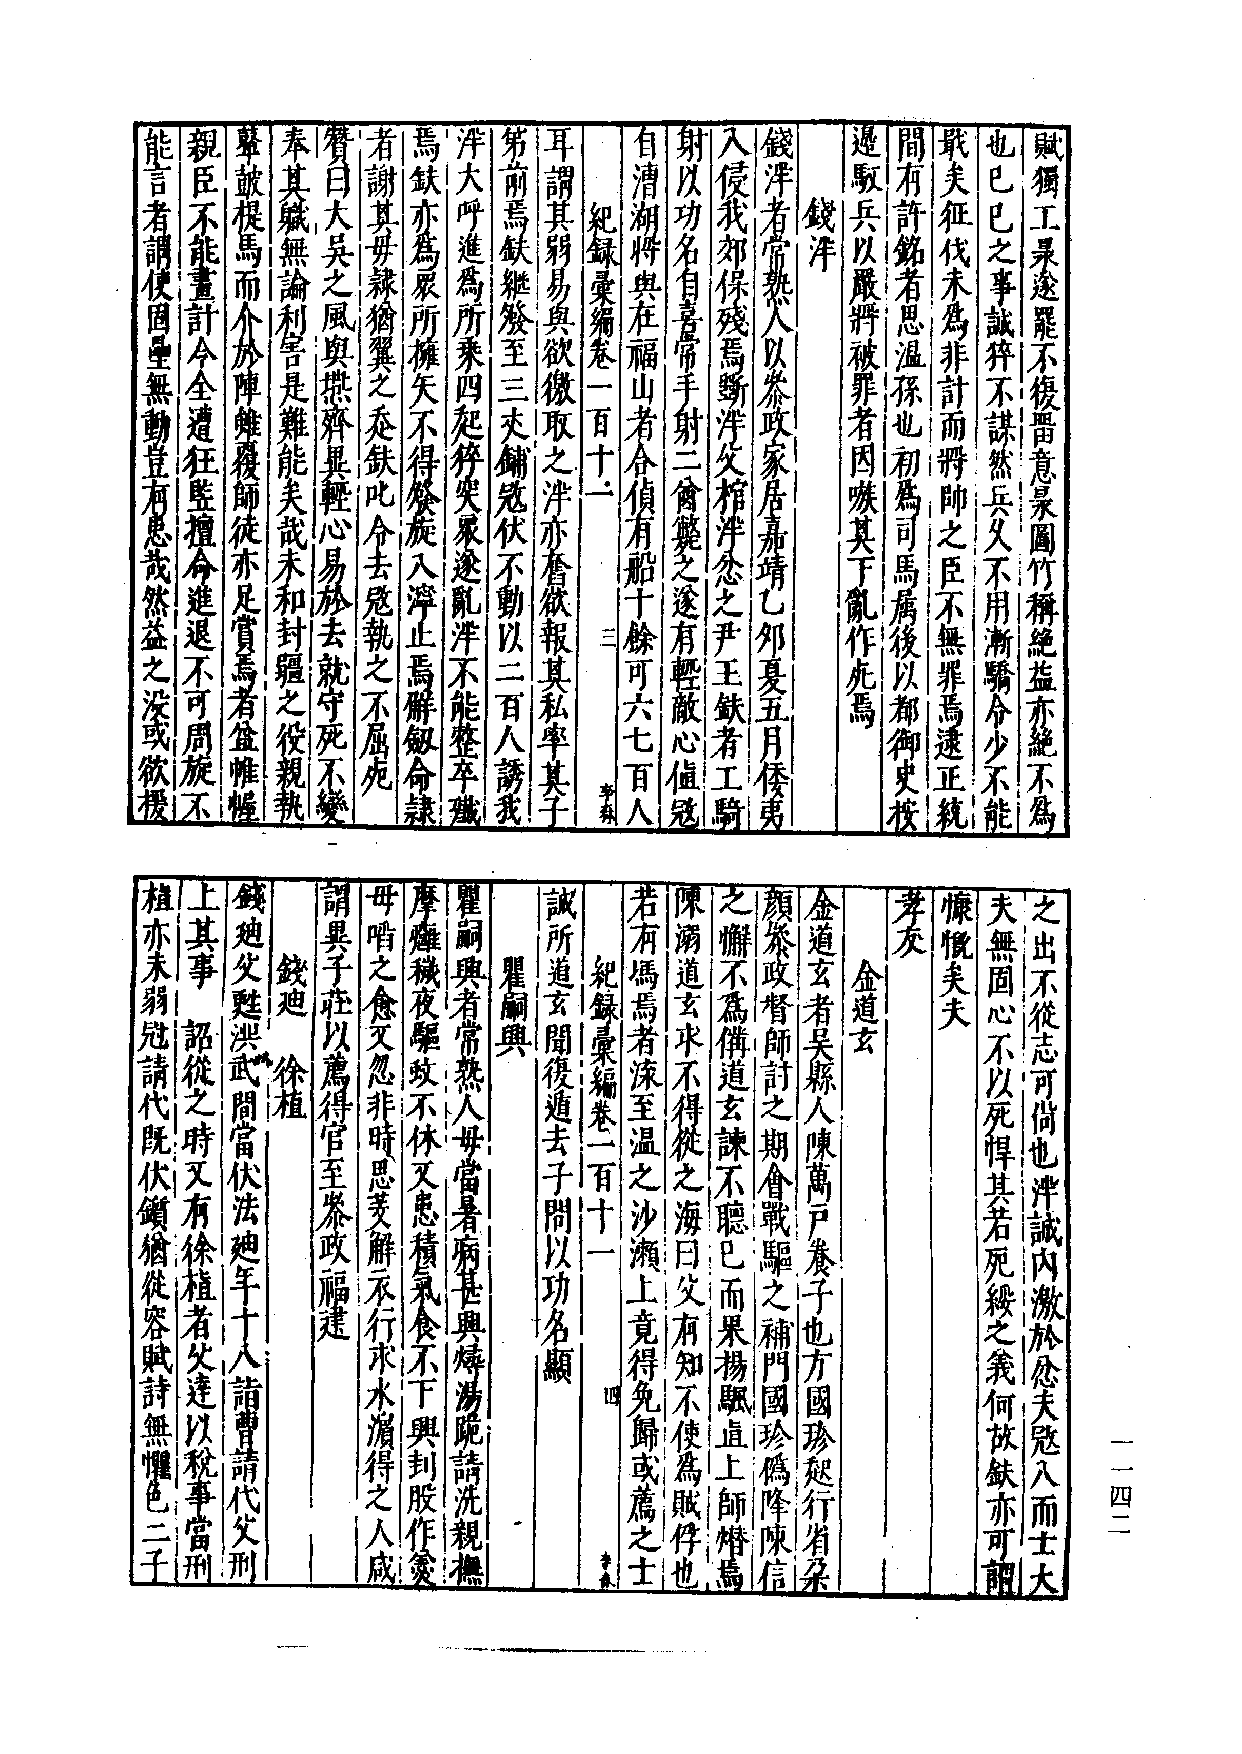 賦獨工杲遂罷不復畱意杲圖竹稱絶益亦絶不爲
也己巳之事誠猝不謀然兵久不用漸驕令少不能
戢矣征伐未爲非計而將帥之臣不無罪焉逮正統
間有許銘者思溫孫也初爲司馬属後以都御史按
邊馭兵以嚴將被罪者因嗾其下亂作死焉
錢泮
錢泮者常熟人以叅政家居嘉靖乙夘夏五月倭夷
入侵我郊保殘焉斵泮父棺泮忿之尹王鈇者工騎
射以功名自喜常手射二酋斃之遂有輕敵心偵冦
自漕湖將與在福山者合偵有船十餘可六七百人
紀録彙編卷一百十一
三
李林
耳謂其弱易與欲徼取之泮亦奮欲報其私率其子
弟前焉鈇継發至三丈鋪冦伏不動以二百人誘我
泮大呼進爲所乘四起猝突衆遂亂泮不能整卒殲
焉鈇亦爲衆所擁矢不得發旋入濘止焉解劔命隷
者謝其母隷猶翼之走鈇叱令去冦執之不屈死
贊曰大吳之風與墣齊異輕心易於去就守死不變
奉其職無論利害是難能矣哉未和封疆之役親執
鼙鼓提馬而介於陣雖覆師徒亦足賞焉者益帷幄
親臣不能畫計令全遭狂監擅命進退不可周旋不
能言者謂使固壘無動豈有患哉然益之没或欲援
之出不從志可尙也泮誠内激於忿夫冦入而士大
夫無固心不以死悍其若死綏之義何故鈇亦可謂
慷慨矣夫
孝友
金道玄
金道玄者吳縣人陳萬戸養子也方國珍起行省朶
顏叅政督師討之期會戰驅之補門國珍僞降陳信
之懈不爲備道玄諫不聽已而果揚颿直上師熸焉
陳溺道玄求不得從之海曰父有知不使爲賊俘也
若有馮焉者泺至温之沙瀨上竟得免歸或薦之士
紀録彙編卷一百十一
四
李林
誠所道玄聞復遁去子問以功名顯
瞿嗣興
瞿嗣興者常熟人母當暑病甚興燖湯跪請洗親撫
摩爊穢夜驅蚊不休又患積氣食不下興刲股作羹
母㗖之愈又忽非時思芰解衣行求水濵得之人咸
謂異子莊以薦得官至叅政福建
錢廸　徐植
錢廸父甦洪武間當伏法廸年十八詣曹請代父刑
上其事　詔從之時又有徐植者父達以稅事當刑
植亦未弱冠請代既伏鑕猶從容賦詩無懼色二子
一一四二